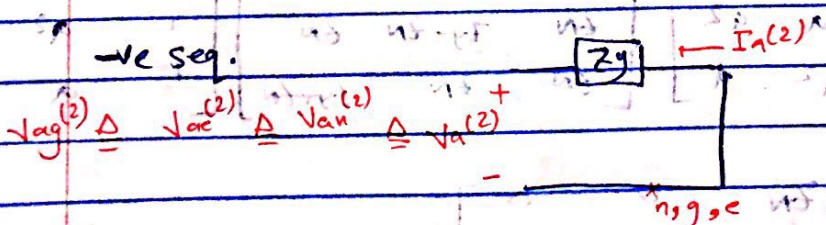 -ve seq.
Zy
← Ia(2)
Vag(2) ≜ Vae(2) ≜ Van(2) ≜ Va(2)
+
-
n, g, e